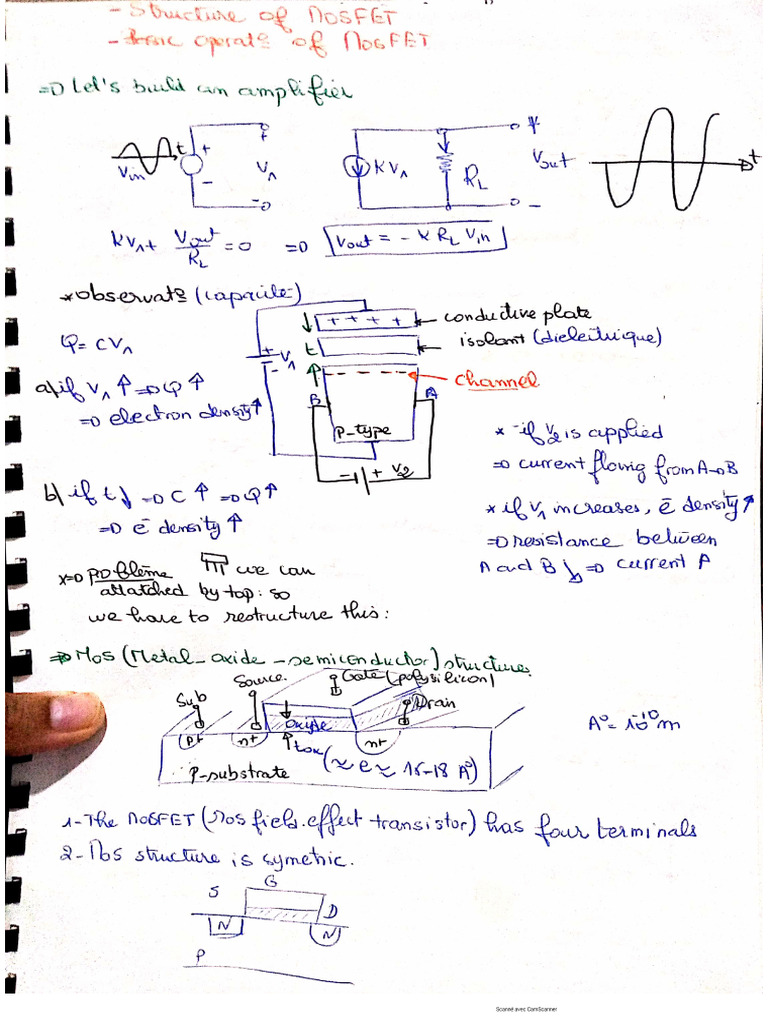 - Structure of MOSFET
- Basic operat° of MOSFET
=> Let's build an amplifier
Vin t + - + V1 - o
KV1 RL + Vout - t
KV1 + Vout/RL = 0 => Vout = - K RL Vin
* observat° (capacité)
++++ conductive plate
Q = CV1
t isolant (dielectrique)
+ - V1
channel
a) if V1 ↑ => Q ↑
=> electron density ↑
B A
P-type
- + V2
* if V2 is applied
=> current flowing from A→B
b) if t ↓ => C ↑ => Q ↑
=> e- density ↑
* if V1 increases, e- density ↑
=> resistance between
A and B ↓ => current ↑
x => problème we can
attatched by top: so
we have to restructure this:
=> MOS (Metal-oxide-semiconductor) structure.
Sub Source Gate (polysilicon) Drain
P+ n+ oxide n+
A° = 10^-10 m
P-substrate tox (≈ e ≈ 15-18 A°)
1- The MOSFET (Mos field.effect transistor) has four terminals
2- Mos structure is symetric.
S G D
N N
P
Scanné avec CamScanner